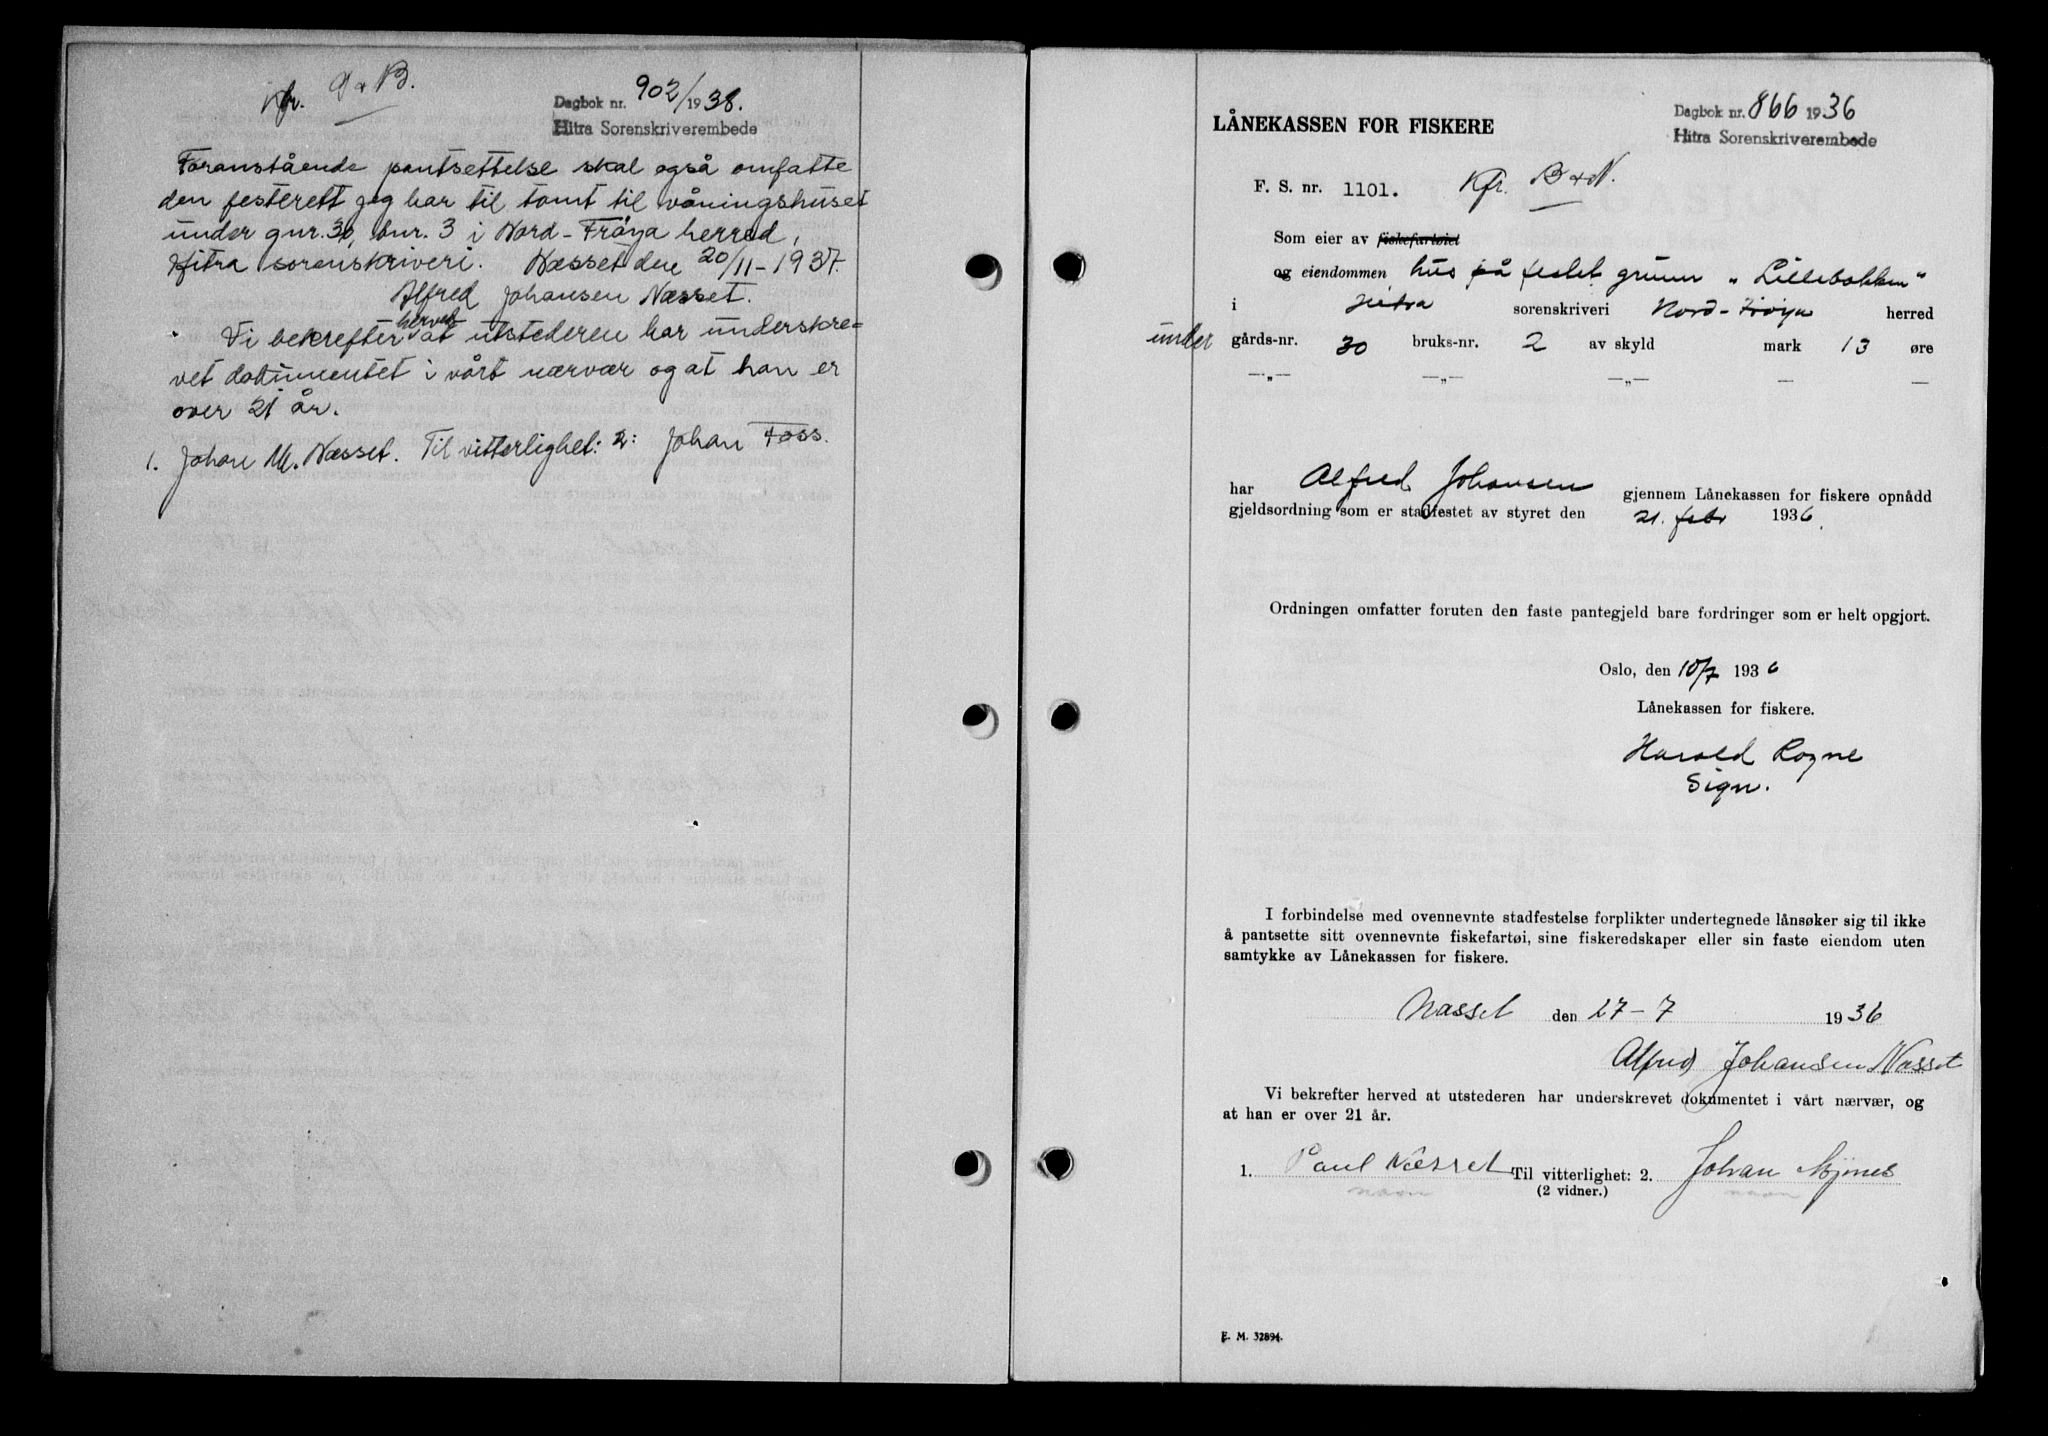 Kfr. G & B.
Dagbok nr. 902/1938.
Hitra Sorenskriverembede
Foranstående pantsettelse skal også omfatte
den festerett jeg har til tomt til våningshuset
under gnr. 30, bnr. 3 i Nord-Frøya herred,
Hitra sorenskriveri. Næsset den 20/11-1937.
Alfred Johansen Næsset.
Vi bekrefter herved at utstederen har underskre-
vet dokumentet i vårt nærvær og at han er
over 21 år.
1. Johan M. Næsset. Til vitterlighet: 2: Johan Foss.
Dagbok nr. 866 1936
Hitra Sorenskriverembede
LÅNEKASSEN FOR FISKERE
F. S. nr. 1101. Kfr. B & N.
Som eier av fiskefartøiet
og eiendommen hus på festet grunn „Lillebakken"
i Hitra sorenskriveri Nord-Frøya herred
under gårds-nr. 30 bruks-nr. 2 av skyld mark 13 øre
—„— —„— —„— — —
har Alfred Johansen gjennem Lånekassen for fiskere opnådd
gjeldsordning som er stadfestet av styret den 21. febr 1936.
Ordningen omfatter foruten den faste pantegjeld bare fordringer som er helt opgjort.
Oslo, den 10/7 1936
Lånekassen for fiskere.
Harald Rogne
Sign.
I forbindelse med ovennevnte stadfestelse forplikter undertegnede lånsøker sig til ikke
å pantsette sitt ovennevnte fiskefartøi, sine fiskeredskaper eller sin faste eiendom uten
samtykke av Lånekassen for fiskere.
Nasset den 27-7 1936
Alfred Johansen Nasset
Vi bekrefter herved at utstederen har underskrevet dokumentet i vårt nærvær, og
at han er over 21 år.
1. Paul Næsset Til vitterlighet: 2. Johan
(2 vidner.)
navn navn
E. M. 32894.